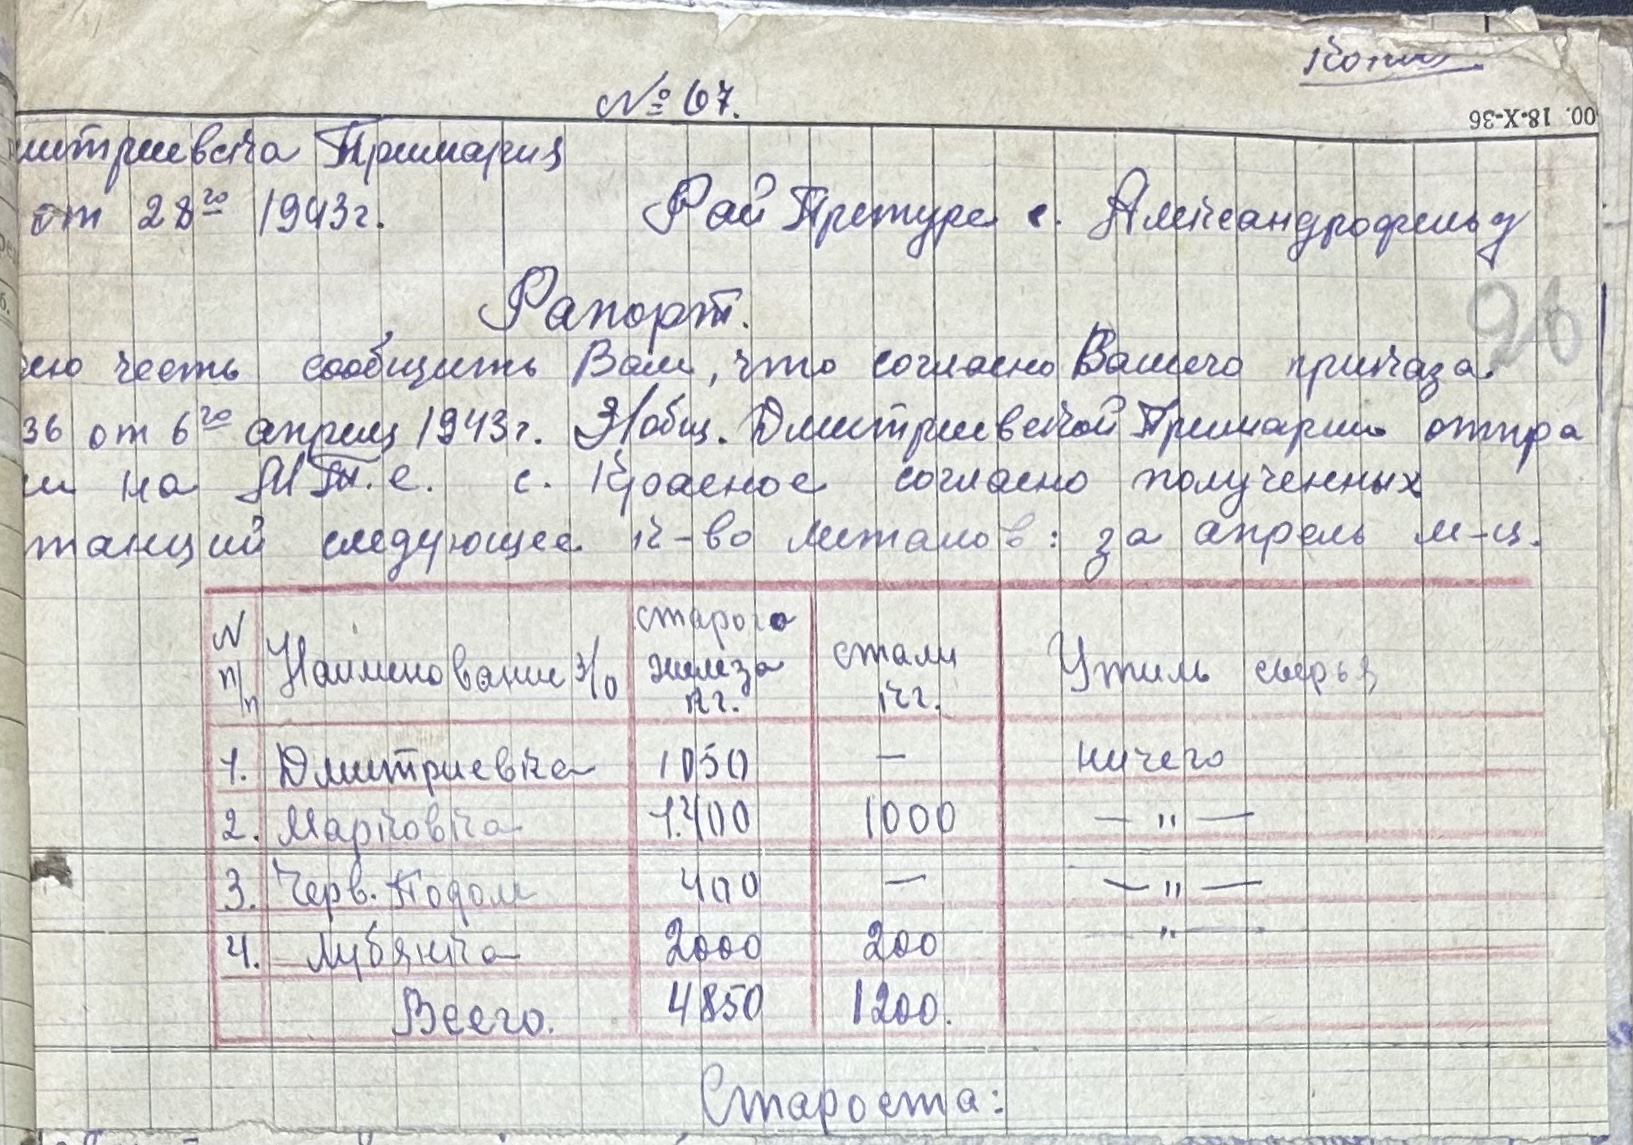 Копия
№ 67.
00. 18-X-36
митриевска Примария
от 28го 1943г. Рай Претуре с. Александрофельд
26
Рапорт.
ею честь сообщить Вам, что согласно Вашего приказа
36 от 6го апреля 1943г. Н/общ. Дмитриевской Примарии отпра
ли на М.Т.С. с. Красное согласно полученных
танций следующее к-во металов: за апрель м-ц.
N п/п Наименование з/о старого железа кг. стали кг. Утиль сырья
1. Дмитриевка 1050 — ничего
2. Марковка 1.400 1000 — " —
3. Черв. Подом 400 — — " —
4. Лубянка 2000 200 — " —
Всего. 4850 1200.
Староста: